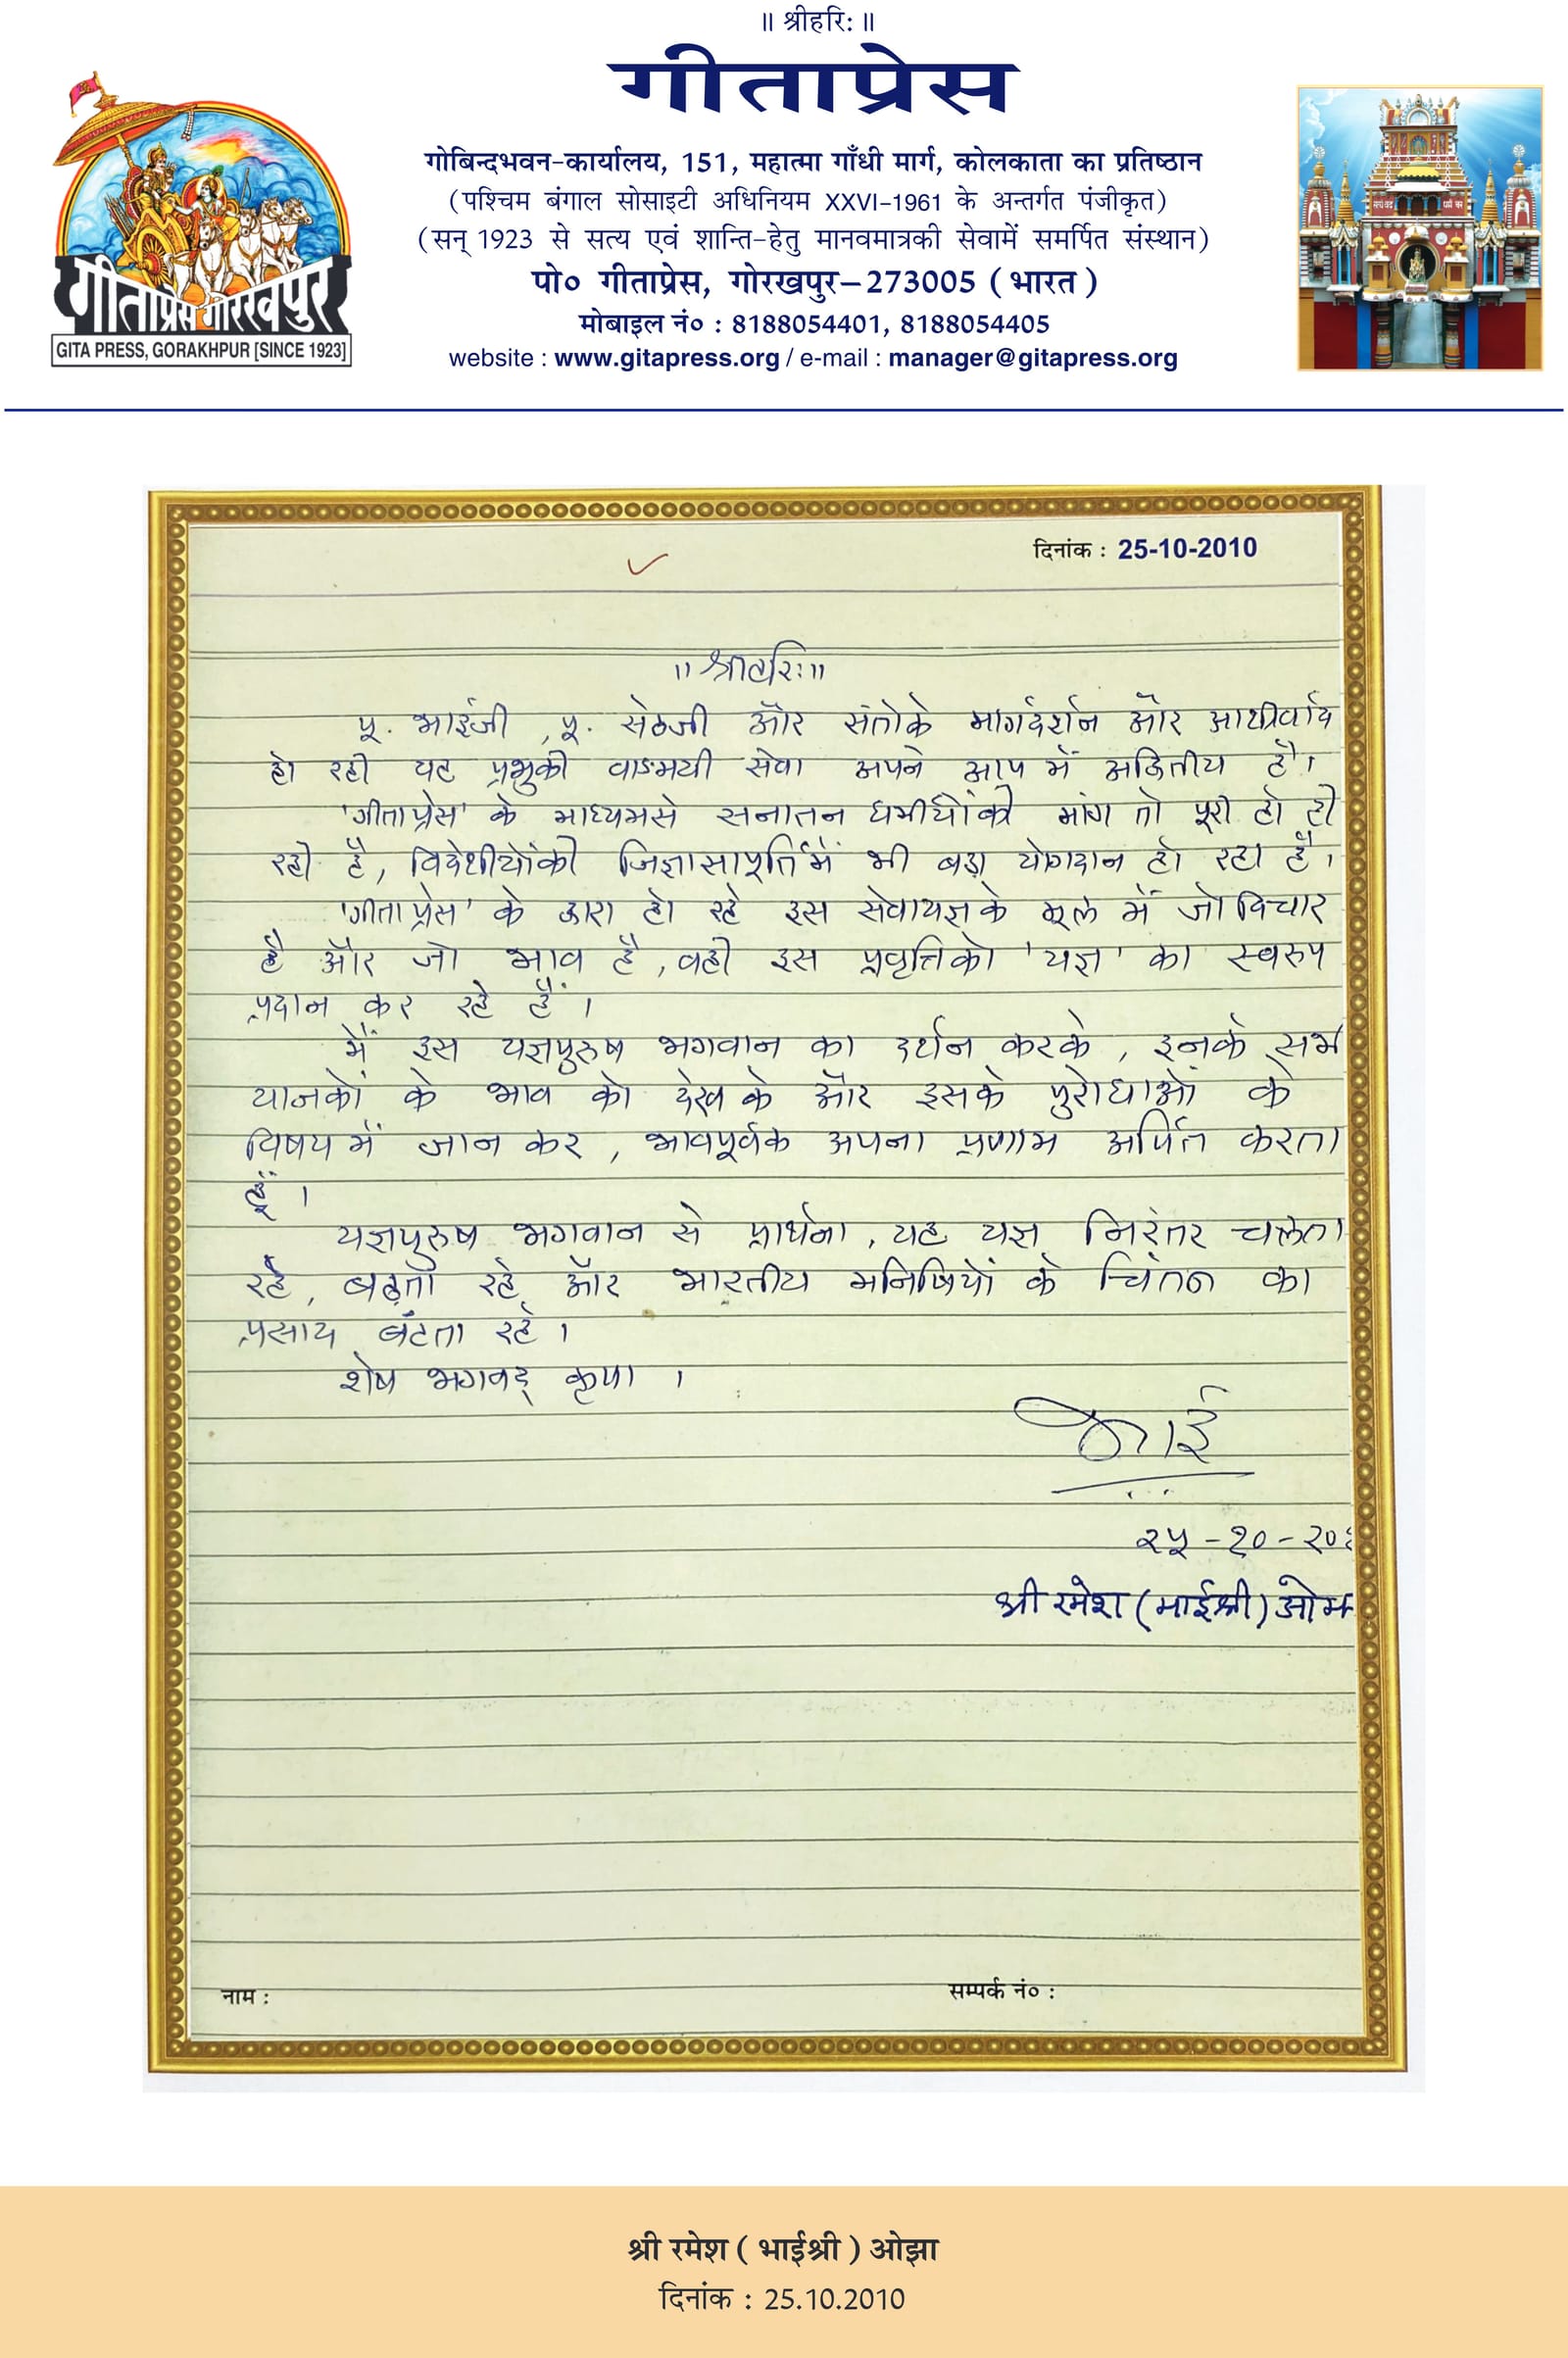 ॥ श्रीहरि: ॥
गीताप्रेस
गोबिन्दभवन-कार्यालय, 151, महात्मा गाँधी मार्ग, कोलकाता का प्रतिष्ठान
(पश्चिम बंगाल सोसाइटी अधिनियम XXVI-1961 के अन्तर्गत पंजीकृत)
(सन् 1923 से सत्य एवं शान्ति-हेतु मानवमात्रकी सेवामें समर्पित संस्थान)
पो० गीताप्रेस, गोरखपुर–273005 ( भारत )
मोबाइल नं० : 8188054401, 8188054405
website : www.gitapress.org / e-mail : manager@gitapress.org
गीताप्रेस गोरखपुर
GITA PRESS, GORAKHPUR [SINCE 1923]
दिनांक : 25-10-2010
॥ श्रीहरिः ॥
पू. भाईजी , पू. सेठजी और संतोके मार्गदर्शन और आशीर्वाद
हो रही यह प्रभुकी वाङमयी सेवा अपने आप में अद्वितीय है।
'गीताप्रेस' के माध्यमसे सनातन धर्मीयोंकी मांग तो पूरी हो ही
रही है, विदेशीयोंकी जिज्ञासापूर्तिमें भी बड़ा योगदान हो रहा है।
'गीताप्रेस' के द्वारा हो रहे इस सेवायज्ञके मूल में जो विचार
है और जो भाव है, वही इस प्रवृत्तिको 'यज्ञ' का स्वरुप
प्रदान कर रहे हैं।
मैं इस यज्ञपुरुष भगवान का दर्शन करके, इनके सभी
याजकों के भाव को देख के और इसके पुरोधाओं के
विषय में जान कर, भावपूर्वक अपना प्रणाम अर्पित करता
हूं।
यज्ञपुरुष भगवान से प्रार्थना, यह यज्ञ निरंतर चलता
रहे, बढ़ता रहे और भारतीय मनिषियों के चिंतन का
प्रसाद बंटता रहे।
शेष भगवद् कृपा ।
भाई
२५-१०-२०१
श्री रमेश (भाईश्री) ओझ
नाम :
सम्पर्क नं० :
श्री रमेश ( भाईश्री ) ओझा
दिनांक : 25.10.2010